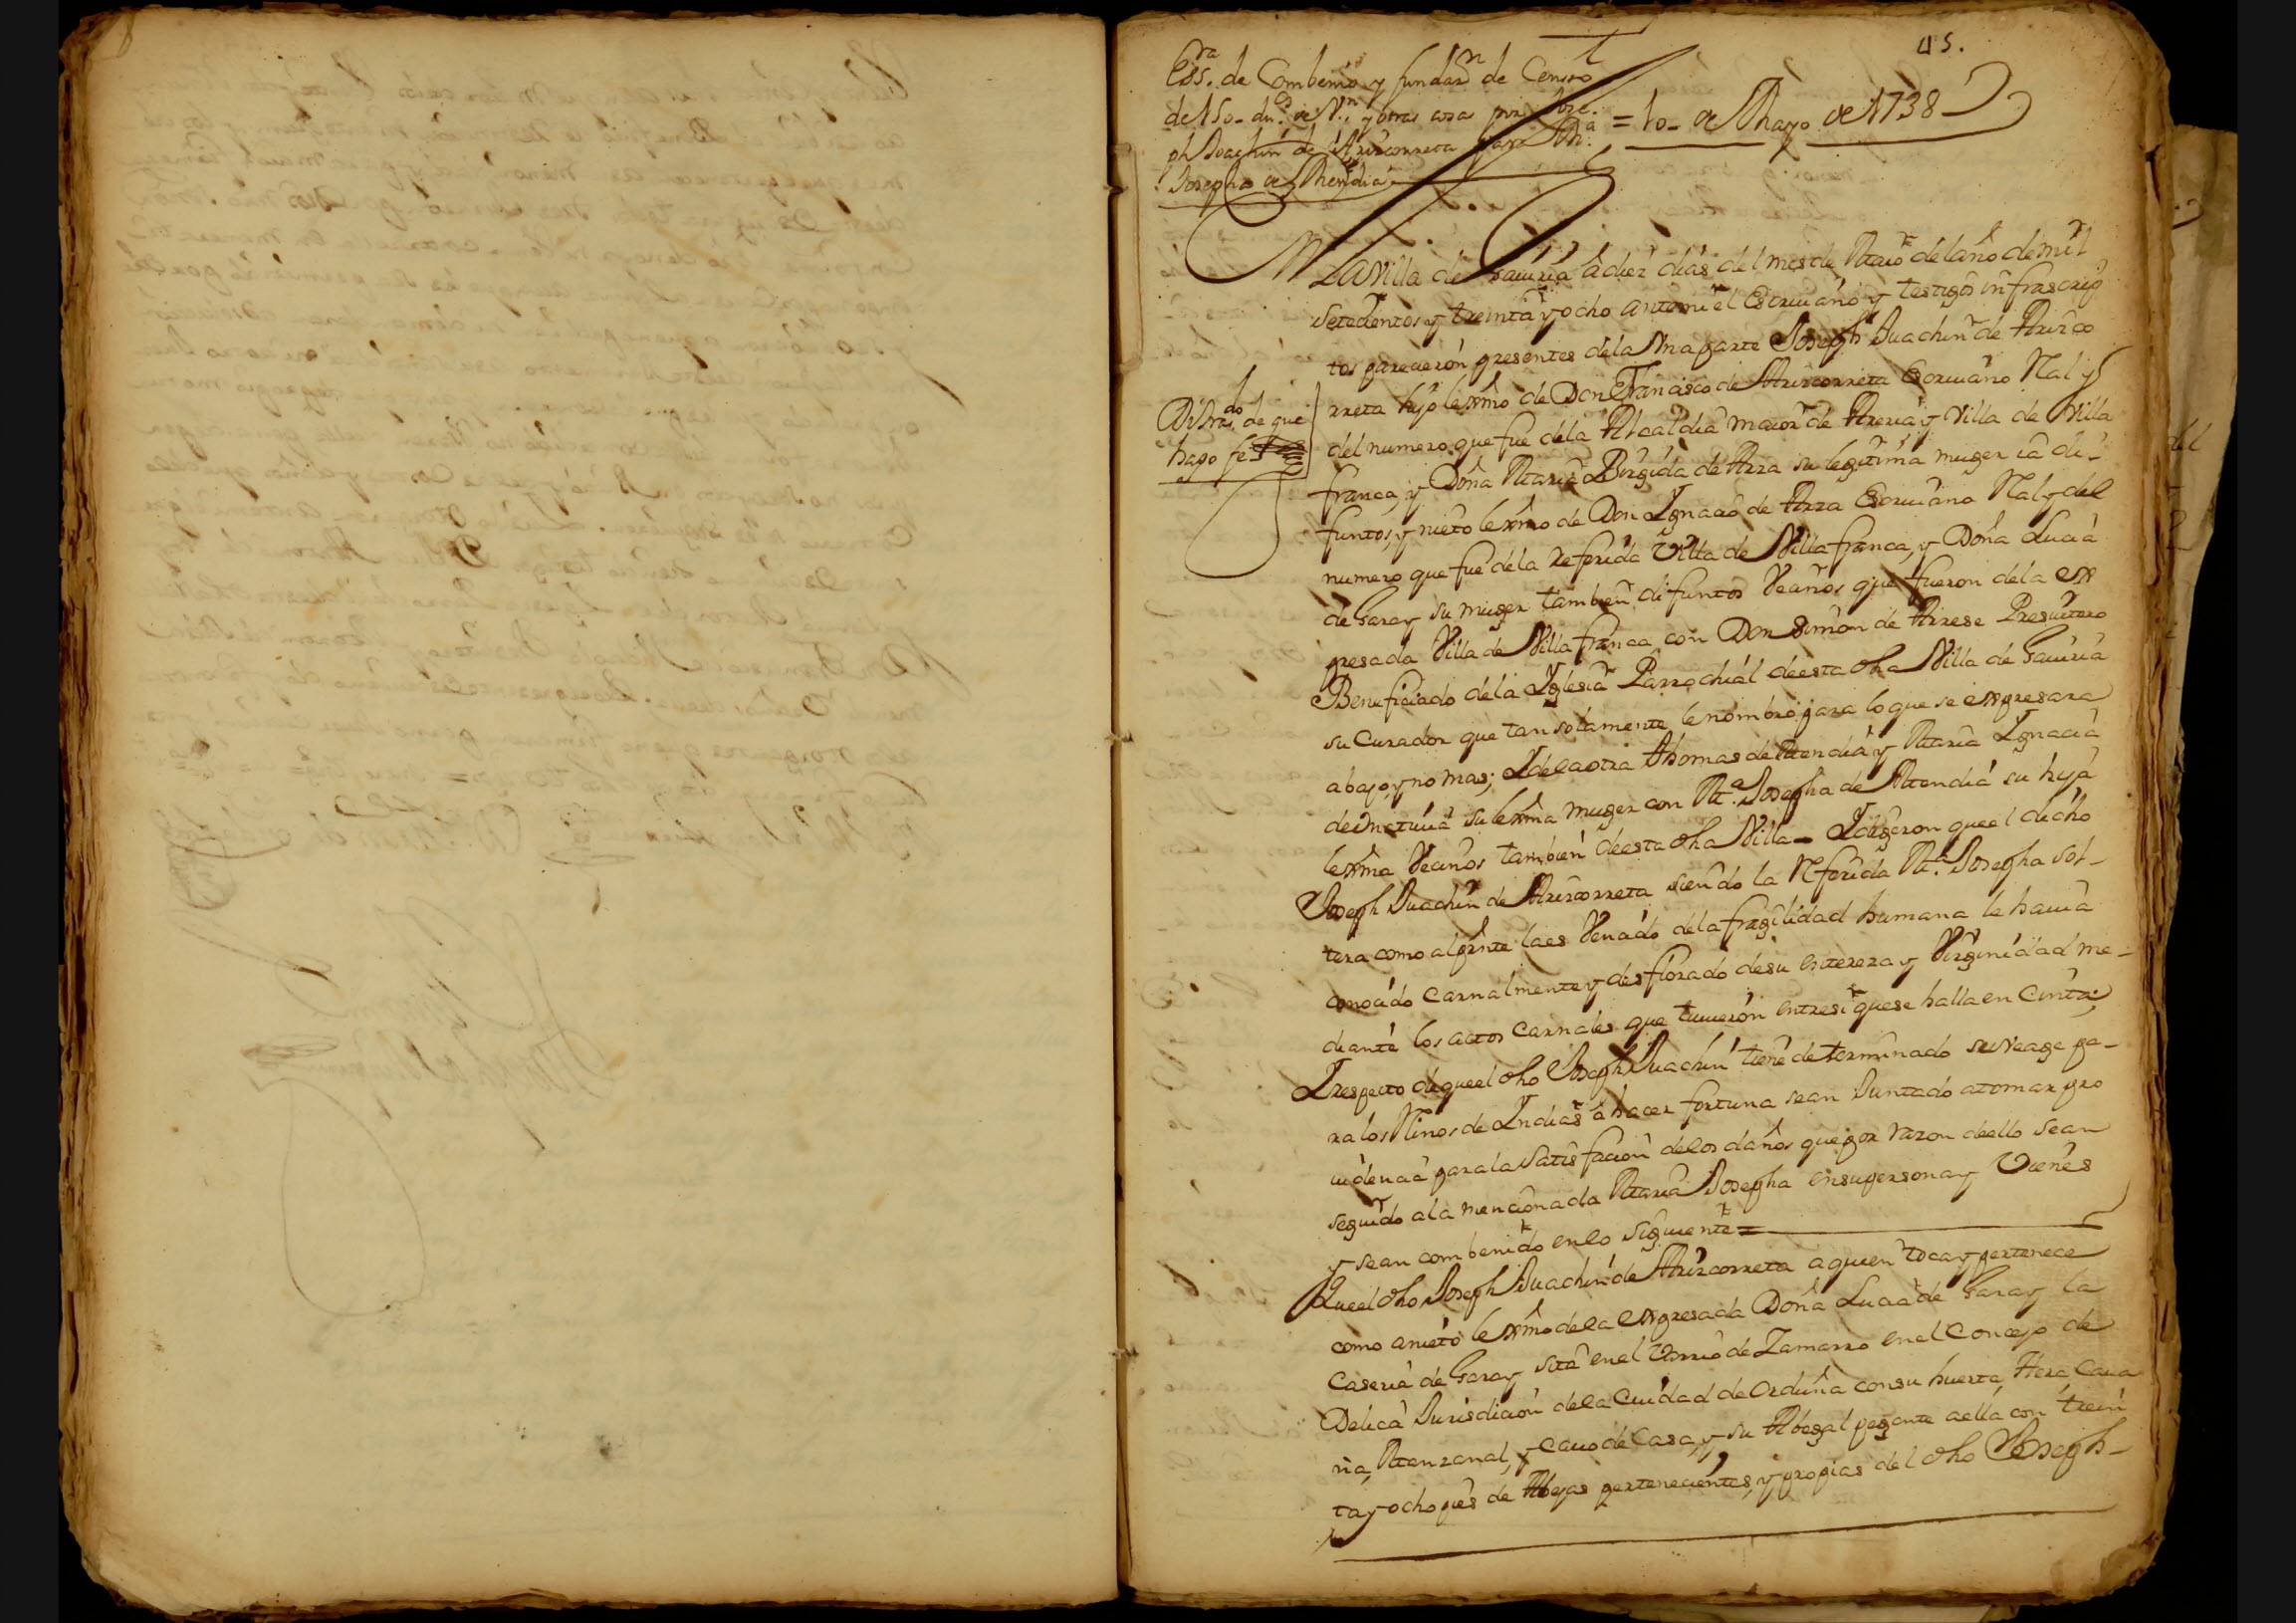 45.
Ess.ra de Combenio y fundaz.n de Censo
de 150 du.s de v.n y otras cosas por Jose-
ph Joachin de Arizcorreta para M.a
Josepha de Mendia
= 10 de Mayo de 1738
En La Villa de Gauiria a diez dias del mes de Maio del año de mil
setecientos y treinta y ocho ante mi el Escriuano y testigos infrascrip
tos parecieron presentes de la vna parte Joseph Juachin de Arizco
rreta hijo lexmo de Don Francisco de Arizcorreta Escriuano Ral y
del numero que fue de la Alcaldia maior de Areria y Villa de Villa
franca, y Doña Maria Brigida de Arza su legitima muger ia di-
funtos, y nieto lexmo de Don Ygnacio de Arza Escriuano Ral y del
numero que fue de la referida Villa de Villafranca, y Doña Lucia
de Garay su muger tambien difuntos Vecinos que fueron de la ex
presada Villa de Villafranca con Don Simon de Arrese Presuitero
Beneficiado de la Yglesia Parrochial de esta dha Villa de Gauiria
su Curador que tan solamente le nombro para lo que se expresara
abajo, y no mas; Y de la otra Thomas de Mendia y Maria Ygnacia
de su lexma muger con M.a Josepha de Mendia su hija
lexma Vecinos tambien de esta dha Villa - Y dixeron que el dicho
Joseph Juachin de Arizcorreta siendo la Referida M.a Josepha Sol-
tera como al presnte la es Vencido de la fragilidad humana le hauia
conocido carnalmente y desflorado de su entereza y Virginidad me-
diante los actos carnales que tuuieron entre si que se halla en cinta;
Y respecto de que el dho Joseph Juachin tiene determinado su Veage pa-
ra los Reinos de Yndias a hacer fortuna se an Juntado a tomar pro
uidencia para la satisfacion de los daños que por razon de ello se an
seguido a la mencionada Maria Josepha en su persona y Vienes
y se an combenido en lo siguiente =
Que el dho Joseph Juachin de Arizcorreta a quien toca y pertenece
como a nieto lexmo de la expresada Doña Lucia de Garay la
Caseria de Garay sita en el Varrio de Zamarro en el Concejo de
Delica Jurisdicion de la Ciudad de Orduña con su huerta, Hera, Caua
ña, Manzanal, y Cauo de Casa, y su Abejal pegante a ella con trein
ta y ocho pies de Abejas pertenecientes, y propias del dho Joseph-
Disfras.do de que
hago fe